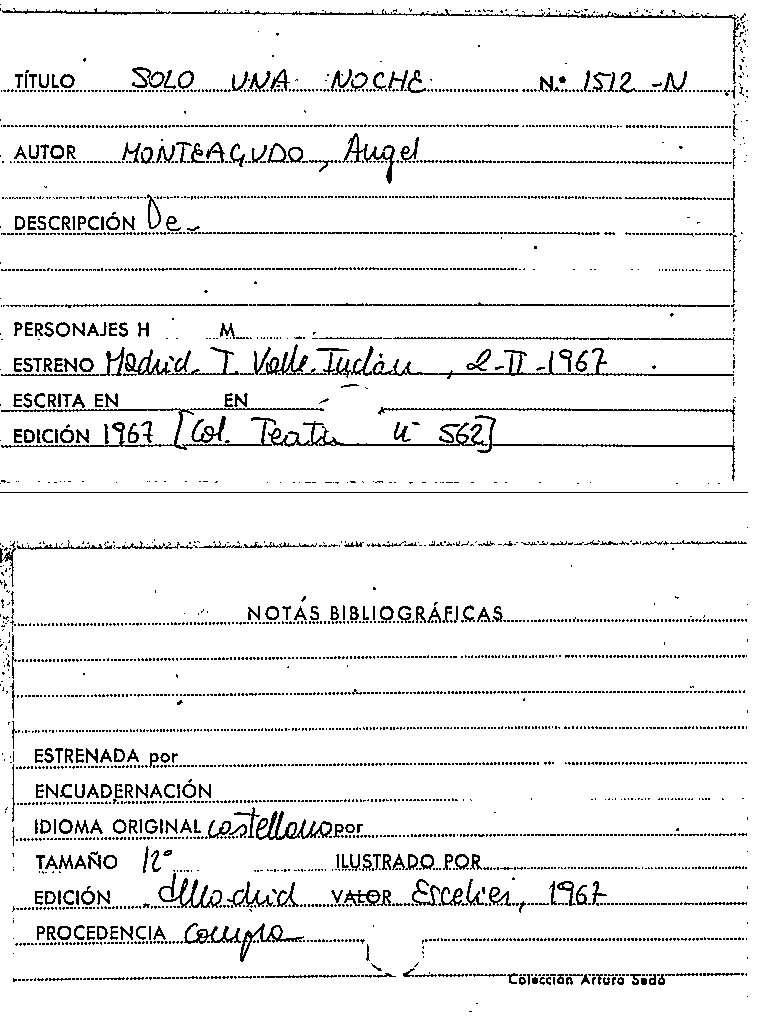 TÍTULO SOLO UNA NOCHE N.º 1512 -N
AUTOR MONTEAGUDO, Angel
DESCRIPCIÓN De
PERSONAJES H M
ESTRENO Madrid. T. Valle-Inclán, 2-II-1967
ESCRITA EN EN
EDICIÓN 1967 [Col. Teatro nº 562]
NOTAS BIBLIOGRÁFICAS
ESTRENADA por
ENCUADERNACIÓN
IDIOMA ORIGINAL castellano por
TAMAÑO 12º ILUSTRADO POR
EDICIÓN Madrid VALOR Escelicer, 1967
PROCEDENCIA Compra
Colección Arturo Sedó